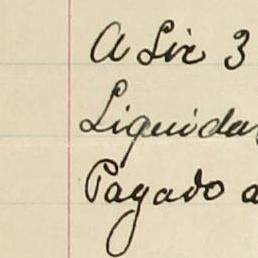 A Lir 3
Liquida
Pagado a